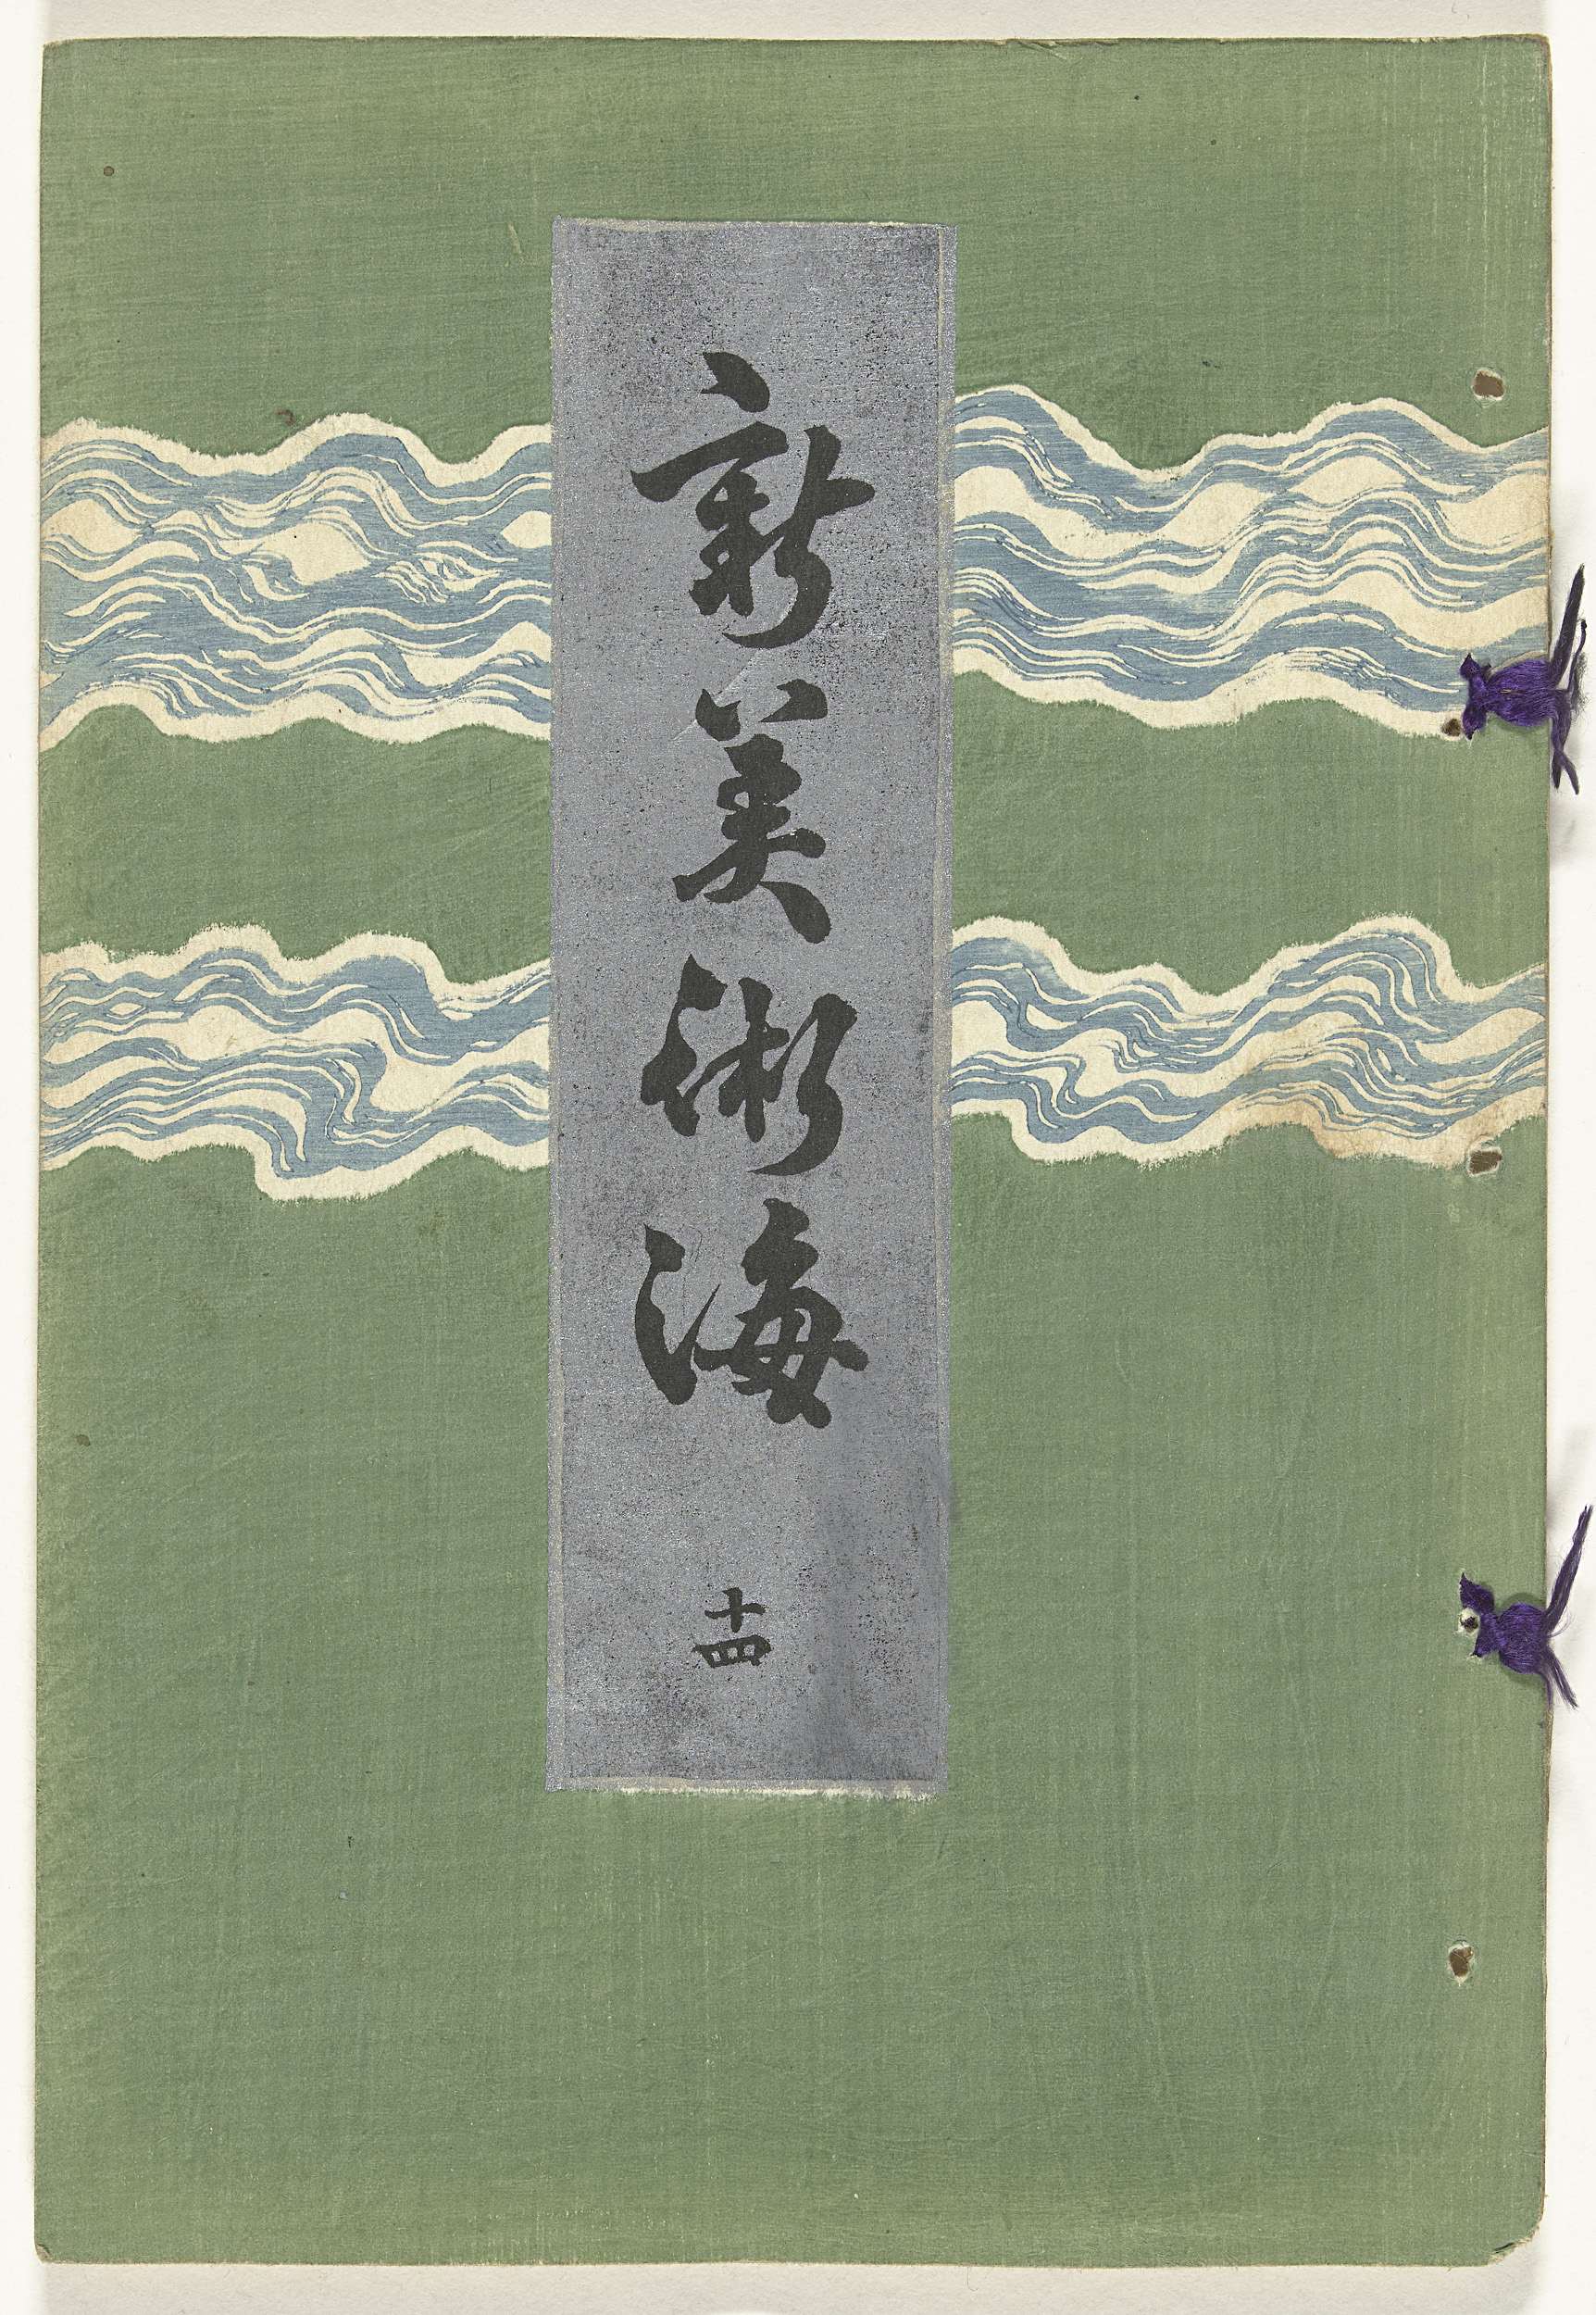 新美術海
十四